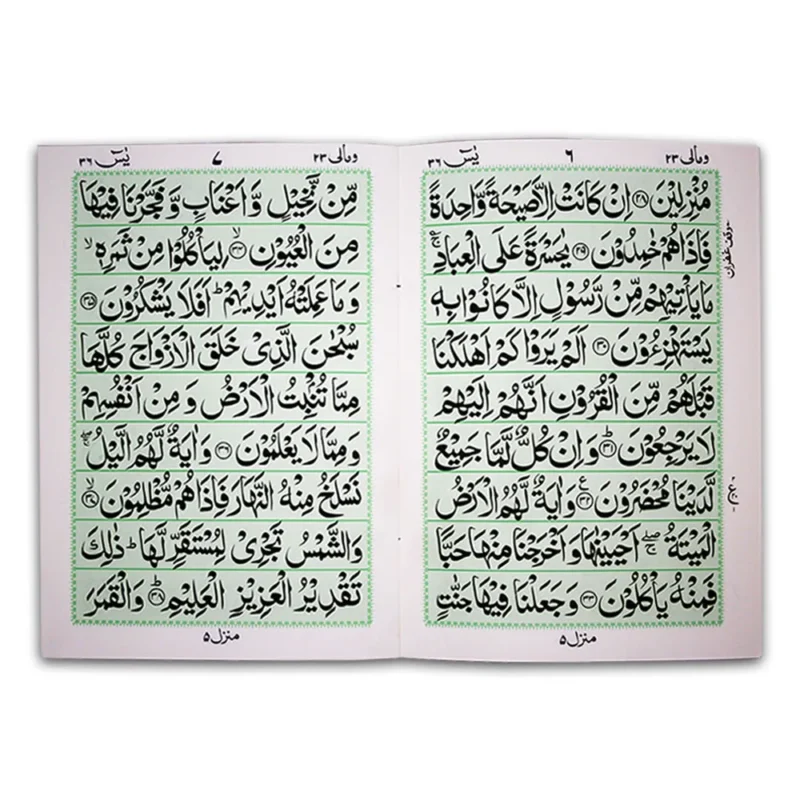 ومالی ٢٣
٦
يٰسٓ ٣٦
مُنْزِلِيْنَ ﴿٢٨﴾ اِنْ كَانَتْ اِلَّا صَيْحَةً وَّاحِدَةً
فَاِذَا هُمْ خٰمِدُوْنَ ﴿٢٩﴾ يٰحَسْرَةً عَلَى الْعِبَادِ ۚ
مَا يَاْتِيْهِمْ مِّنْ رَّسُوْلٍ اِلَّا كَانُوْا بِهٖ
يَسْتَهْزِءُوْنَ ﴿٣٠﴾ اَلَمْ يَرَوْا كَمْ اَهْلَكْنَا
قَبْلَهُمْ مِّنَ الْقُرُوْنِ اَنَّهُمْ اِلَيْهِمْ
لَا يَرْجِعُوْنَ ﴿٣١﴾ وَاِنْ كُلٌّ لَّمَّا جَمِيْعٌ
لَّدَيْنَا مُحْضَرُوْنَ ﴿٣٢﴾ وَاٰيَةٌ لَّهُمُ الْاَرْضُ
الْمَيْتَةُ ۖۚ اَحْيَيْنٰهَا وَاَخْرَجْنَا مِنْهَا حَبًّا
فَمِنْهُ يَاْكُلُوْنَ ﴿٣٣﴾ وَجَعَلْنَا فِيْهَا جَنّٰتٍ
منزل ٥
وقف غفران
ع
ومالی ٢٣
٧
يٰسٓ ٣٦
مِّنْ نَّخِيْلٍ وَّاَعْنَابٍ وَّفَجَّرْنَا فِيْهَا
مِنَ الْعُيُوْنِ ﴿٣٤﴾ لِيَاْكُلُوْا مِنْ ثَمَرِهٖ ۙ
وَمَا عَمِلَتْهُ اَيْدِيْهِمْ ؕ اَفَلَا يَشْكُرُوْنَ ﴿٣٥﴾
سُبْحٰنَ الَّذِيْ خَلَقَ الْاَزْوَاجَ كُلَّهَا
مِمَّا تُنْۢبِتُ الْاَرْضُ وَمِنْ اَنْفُسِهِمْ
وَمِمَّا لَا يَعْلَمُوْنَ ﴿٣٦﴾ وَاٰيَةٌ لَّهُمُ الَّيْلُ ۖۚ
نَسْلَخُ مِنْهُ النَّهَارَ فَاِذَا هُمْ مُّظْلِمُوْنَ ﴿٣٧﴾
وَالشَّمْسُ تَجْرِيْ لِمُسْتَقَرٍّ لَّهَا ؕ ذٰلِكَ
تَقْدِيْرُ الْعَزِيْزِ الْعَلِيْمِ ﴿٣٨﴾ وَالْقَمَرَ
منزل ٥